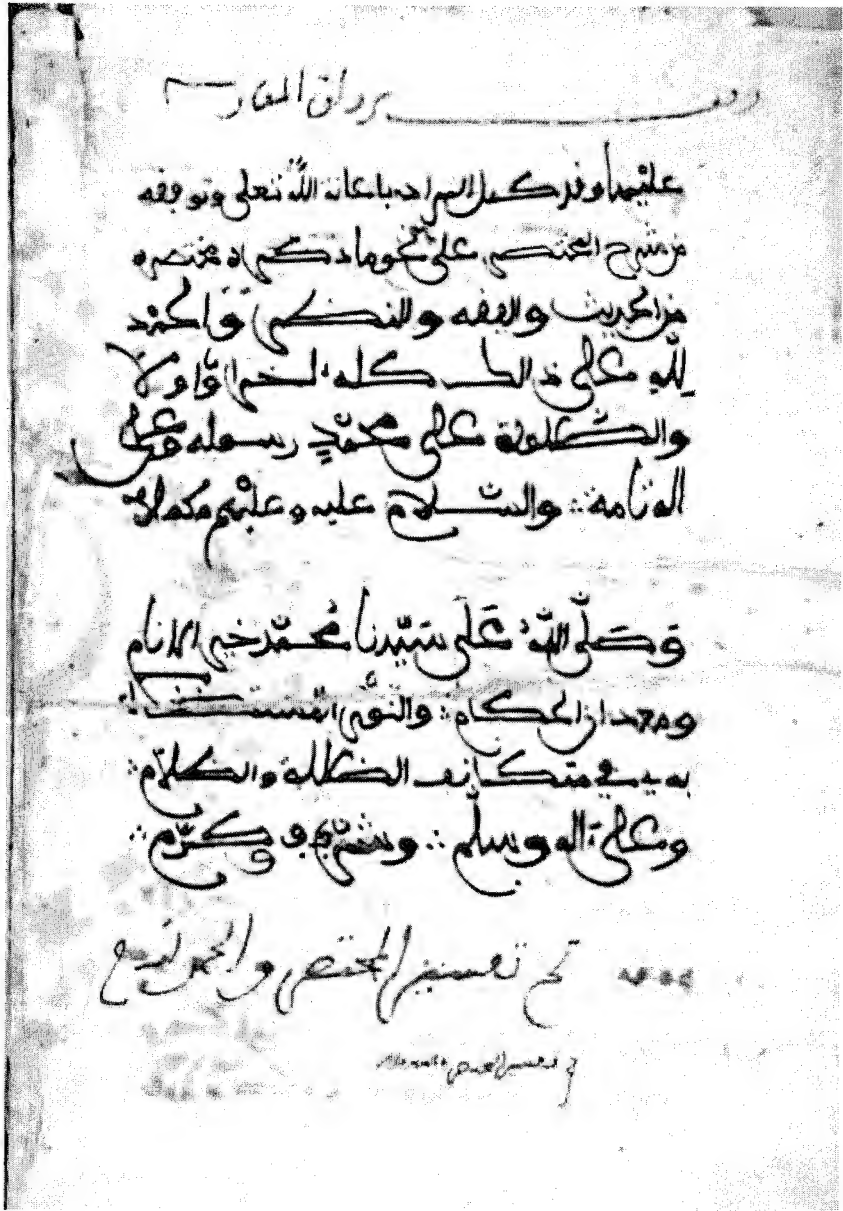 وقف رواق المغاربة
عليهما وقد كمل المراد باعانة الله تعلى وتوفيقه
من شرح المختصر على نحو ما ذكره مختصره
من الحديث والفقه والنظر والحمد
لله على ذالك كله ءاخرا وأولا
والصلوة على محمد رسوله وعلى
اله تامة والسلام عليه وعليهم
وصلى الله على سيدنا محمد خير الانام
والنور المستضاء
به في الظلم والظلام
وعلى ءاله وسلم وشرف وكرم
تم تفسير المختصر والحمد لله
تفسير المختصر